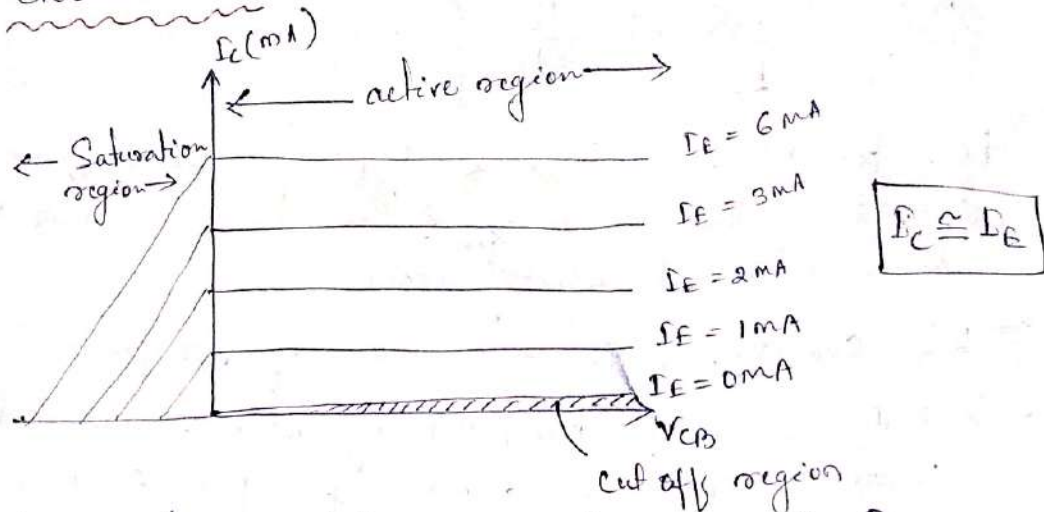 I_C (mA)
← active region →
← Saturation
region →
I_E = 6 mA
I_E = 3mA
I_C ≅ I_E
I_E = 2mA
I_E = 1mA
I_E = 0mA
V_CB
Cut off region